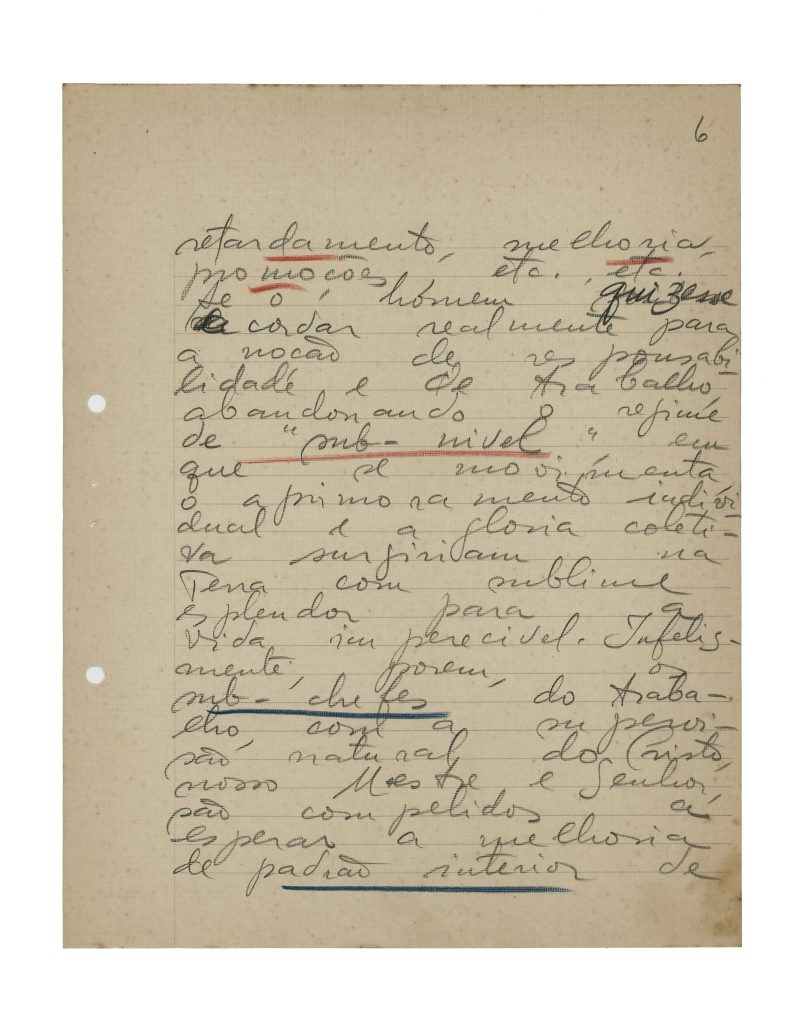 6
retardamento, melhoria,
promoções, etc., etc.
Se o homem quizesse
acordar realmente para
a nocão de responsabi-
lidade e de trabalho,
abandonando o regime
de "sub-nivel" em
que se movimenta
o aprimoramento indivi-
dual e a gloria coleti-
va surgiriam na
Terra com sublime
esplendor para a
vida imperecivel. Infelis-
mente, porem, os
sub-chefes do traba-
lho, com a supervi-
são natural do Cristo,
nosso Mestre e Senhor,
são compelidos a
esperar a melhoria
de padrão interior de